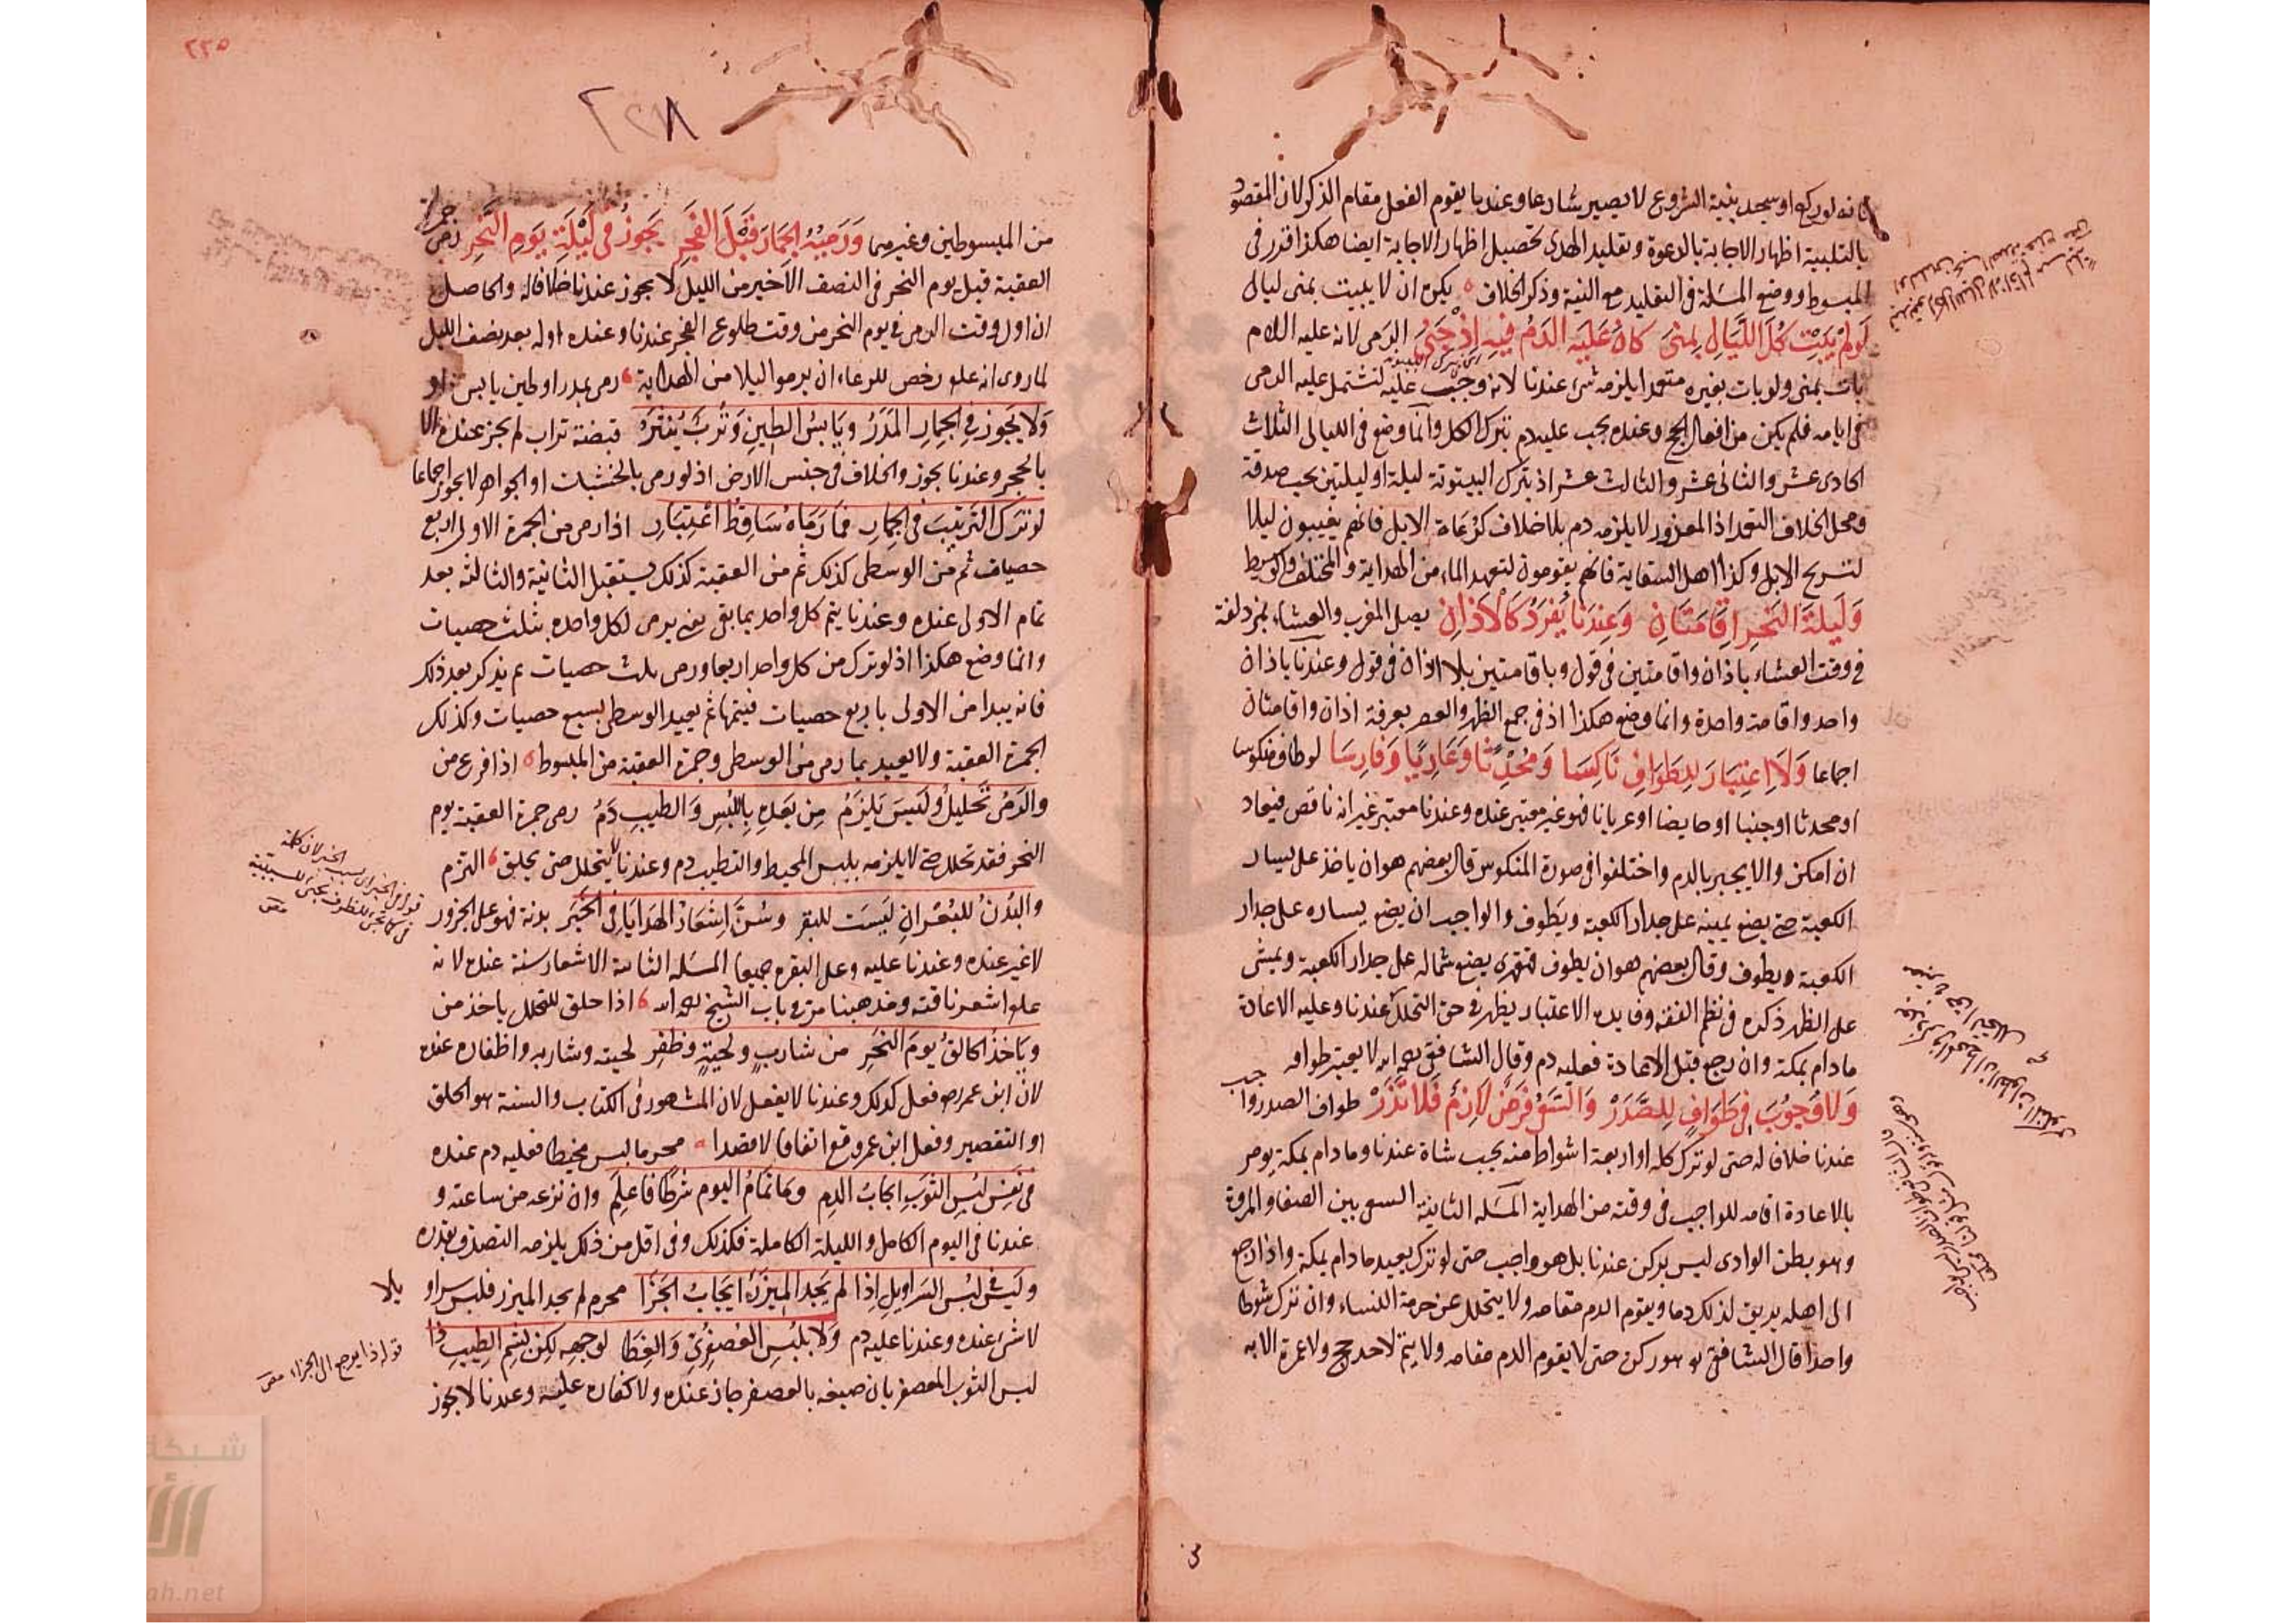 فانه لو ركع او سجد بنية الشروع لا يصير شارعا وعندنا يقوم الفعل مقام الذكر لان المقصود
بالتلبية اظهار الاجابة بالدعوة وتقليد الهدى تحصيل اظهار الاجابة ايضا هكذا قرر فى
المبسوط ووضع المسئلة فى التقليد مع النية وذكر الخلاف يكره ان لا يبيت بمنى ليالى
لَو لَم يَبِت كُلَّ اللَّيَالِى بِمِنَى كَانَ عَلَيهِ الدَمُ فِيهِ اِذ جَنَى الرمى لانه عليه السلام
بات بمنى ولو بات بغيره متعمدا لا يلزمه شئ عندنا لانه وجب عليه لتشتمل عليه الرمى
فى ايامه فلم يكن من افعال الحج وعنده يجب عليه دم بترك الكل وانما وضع فى الليالى الثلاث
الحادى عشر والثانى عشر والثالث عشر اذ بترك البيتوتة ليلة او ليلتين يجب صدقة
ومحل الخلاف التعمد اذ المعزور لا يلزمه دم بلا خلاف كرعاة الابل فانهم يغيبون ليلا
لتسريح الابل وكذا اهل السقاية فانهم يقومون لتعهد الماء من الهداية والمختلف والوسيط
وَلَيلَةَ النَحرِ اِقَامَتَانِ وَعِندَنَا يُفرَدُ كَالاَذَانِ يصلى المغرب والعشاء بمزدلفة
فى وقت العشاء باذان واقامتين فى قول وباقامتين بلا اذان فى قول وعندنا باذان
واحد واقامة واحدة وانما وضع هكذا اذ فى جمع الظهر والعصر بعرفة اذان واقامتان
اجماعا وَلاَ اعتِبَارَ لِلطَوَافِ نَاكِسَا وَمُحدِثًا وَعَارِيًا وَفَارِسَا لو طاف منكوسا
او محدثا او جنبا او حايضا او عريانا فهو غير معتبر عنده وعندنا معتبر غير انه ناقص فيعاد
ان امكن والا يجبر بالدم واختلفوا فى صورة المنكوس قال بعضهم هو ان ياخذ على يسار
الكعبة حتى يضع يمينه على جدار الكعبة ويطوف والواجب ان يضع يساره على جدار
الكعبة ويطوف وقال بعضهم هو ان يطوف قهقرى يضع شماله على جدار الكعبة ويمشى
على الظهر ذكره فى نظم الفقه وفايدة الاعتبار يظهر فى حق التحلل عندنا وعليه الاعادة
مادام بمكة وان رجع قبل الاعادة فعليه دم وقال الشافعى رحمه الله لا يعتبر طوافه
وَلاَ وُجُوبَ فِى طَوَافٍ لِلصَّدَر وَالسَعىُ فَرضٌ لاَزِمٌ فَلاَ تَذَر طواف الصدر واجب
عندنا خلافا له حتى لو ترك كله او اربعة اشواط منه يجب شاة عندنا ومادام بمكة يومر
بالاعادة اقامه للواجب فى وقته من الهداية المسئلة الثانية السعى بين الصفا والمروة
وهو بطن الوادى ليس بركن عندنا بل هو واجب حتى لو ترك يعيد مادام بمكة واذا رجع
الى اهله يريق لذلك دما ويقوم الدم مقامه ولا يتحلل عن حرمة النساء وان ترك شوطا
واحدا قال الشافعى هو ركن حتى لا يقوم الدم مقامه ولا يتم لاحد حج ولا عمرة الا به
٢٣٥
٢٣٨
من المبسوطين وغيرهما وَرَميُهُ الجِمَارَ قَبلَ الفَجرِ يَجُوزُ فِى لَيلَةِ يَومِ النَحرِ رمى جمرة
العقبة قبل يوم النحر فى النصف الاخير من الليل لا يجوز عندنا خلافا له والحاصل
ان اول وقت الرمى فى يوم النحر من وقت طلوع الفجر عندنا وعنده اوله بعد نصف الليل
لما روى انه علم رخص للرعاء ان يرموا ليلا من الهداية رمى بمدر او طين يابس او
وَلاَ يَجُوز فِى الجِمَارِ المَدَرُ وَيَابِسُ الطِينِ وَتُربٌ يُنثَرُ قبضة تراب لم يجز عنده الا
بالحجر وعندنا يجوز والخلاف فى جنس الارض اذ لو رمى بالخشبات او الجواهر لا يجوز اجماعا
لَو تَرَكَ التَرتِيبَ فِى الجِمَارِ فَمَا رَمَاهُ سَاقِطُ اعتِبَارِ اذا رمى من الجمرة الاولى اربع
حصيات ثم من الوسطى كذلك ثم من العقبة كذلك يستقبل الثانية والثالثة بعد
تمام الاولى عنده وعندنا يتم كل واحد بما بقى يعنى يرمى لكل واحده بثلث حصيات
وانما وضع هكذا اذ لو ترك من كل واحد اربعا ورمى بثلث حصيات ثم يذكر بعد ذلك
فانه يبدا من الاولى باربع حصيات فيتمها ثم يعيد الوسطى بسبع حصيات وكذلك
الجمرة العقبة ولا يعيد بما رمى من الوسطى وجمرة العقبة من المبسوط اذا فرغ من
والرَمىُ تَحلِيلٌ وَلَيسَ يَلزَمُ مِن بَعدِهِ بِاللُبسِ وَالطِيبِ دَمُ رمى جمرة العقبة يوم
النحر فقد تحلل حتى لا يلزمه بلبس المحيط والتطيب دم وعندنا لا يتحلل حتى يحلق التزم
والبُدنُ لِلبُعرَانِ لَيسَت لِلبَقَر وسُنَّ اِشعَارُ الهَدَايَا فِى الخَبَر بدنة فهو على الجزور
لا غير عنده وعندنا عليه وعلى البقره جميعا المسئله الثانية الاشعار سنة عنده لانه
علم اشعر ناقته ومذهبنا مر فى باب الشيخ رحمه الله اذا حلق للتحلل ياخذ من
وَيَاخذُ الحَالِقُ يَومَ النَحرِ من شَارِبٍ ولِحيَةٍ وظُفرِ لحيته وشاربه واظفاره عنده
لان ابن عمر رضه فعل كذلك وعندنا لا يفعل لان المشهور فى الكتاب والسنة هو الحلق
او التقصير وفعل ابن عمر وقع اتفاقا لا قصدا محرم لبس مخيطا فعليه دم عنده
فِى نَفسِ لُبسِ الثَوبِ ايجَابُ الدَمِ وَمَا تَمَامُ اليوم شَرطًا فَاعلَمِ وان نزعه من ساعته و
عندنا فى اليوم الكامل والليلة الكاملة فكذلك وفى اقل من ذلك يلزمه التصدق بقدره
ولَيسَ فى لُبسِ السَرَاوِيلِ اِذَا لَم يَجِد المِيزَرَ ايجَابُ الجَزَا محرم لم يجد الميزر فلبس سراويلا
لا شئ عنده وعندنا عليه دم وَلاَ بِلُبسِ العُصفُرِىِّ وَالغِطَا لِوَجهِهِ لكِن لِشَمِّ الطِيبِ ذَا
لبس الثوب المعصفر بان صبغه بالعصفر جاز عنده ولا كفاره عليه وعندنا لا يجوز
قوله ذا يرجع الى الجزاء